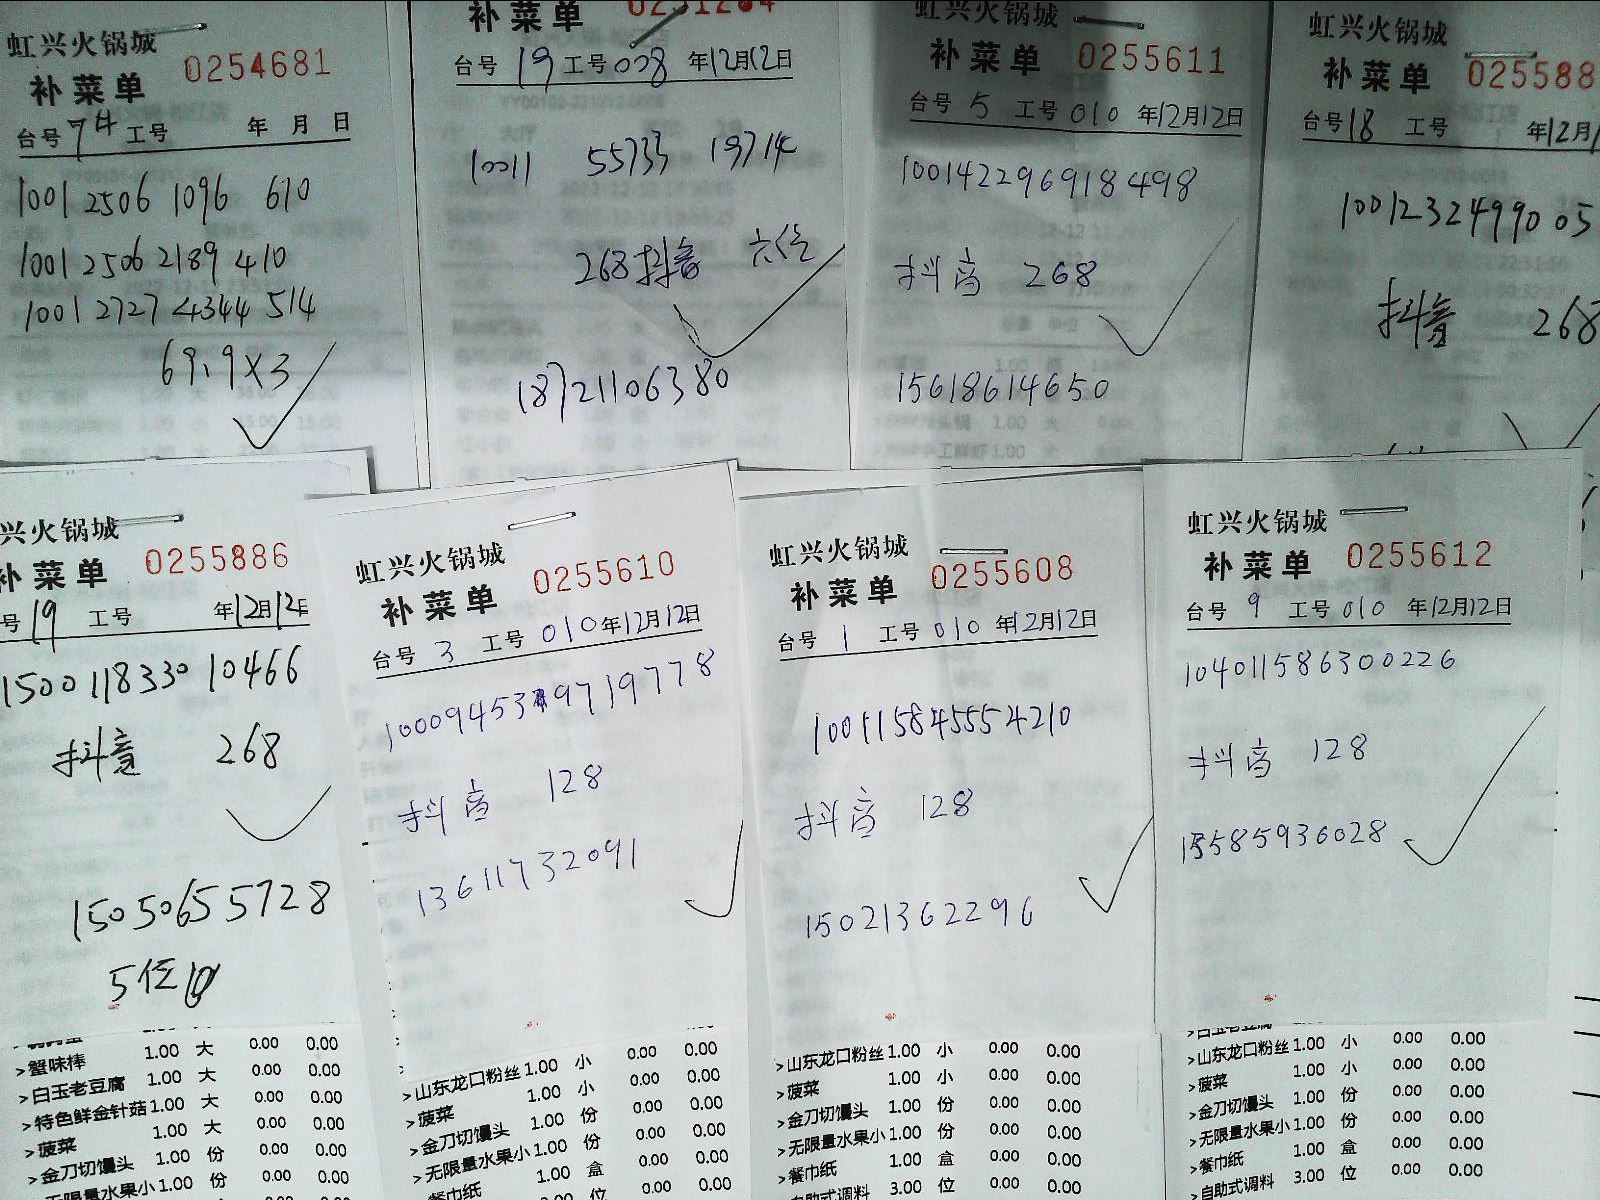 虹兴火锅城
补菜单 0254681
台号 74 工号 年 月 日
1001 2506 1096 610
1001 2506 2189 410
1001 2727 4344 514
69.9×3
补菜单
台号 19 工号 008 年12月12日
10011 55733 19714
268抖音 六位
18721106380
虹兴火锅城
补菜单 0255611
台号 5 工号 010 年12月12日
100142296918498
抖音 268
15618614650
虹兴火锅城
补菜单 025588
台号 18 工号 年12月1
10012324999005
抖音 268
兴火锅城
补菜单 0255886
号 19 工号 年12月12日
1500118330 10466
抖音 268
15050655728
5位
虹兴火锅城
补菜单 0255610
台号 3 工号 010 年12月12日
抖音 128
13611732091
虹兴火锅城
补菜单 0255608
台号 1 工号 010 年12月12日
100115845554210
抖音 128
15021362296
虹兴火锅城
补菜单 0255612
台号 9 工号 010 年12月12日
104011586300226
抖音 128
15585936028
>蟹味棒 1.00 大 0.00 0.00
>白玉老豆腐 1.00 大 0.00 0.00
>特色鲜金针菇 1.00 大 0.00 0.00
>菠菜 1.00 大 0.00 0.00
>金刀切馒头 1.00 份 0.00 0.00
无限量水果小 1.00 份 0.00 0.00
>山东龙口粉丝 1.00 小 0.00 0.00
>菠菜 1.00 小 0.00 0.00
>金刀切馒头 1.00 份 0.00 0.00
>无限量水果小 1.00 份 0.00 0.00
餐巾纸 1.00 盒 0.00 0.00
3.00 位 0.00 0.00
>山东龙口粉丝 1.00 小 0.00 0.00
>菠菜 1.00 小 0.00 0.00
>金刀切馒头 1.00 份 0.00 0.00
>无限量水果小 1.00 份 0.00 0.00
>餐巾纸 1.00 盒 0.00 0.00
自助式调料 3.00 位 0.00 0.00
>白玉老豆腐
>山东龙口粉丝 1.00 小 0.00 0.00
>菠菜 1.00 小 0.00 0.00
>金刀切馒头 1.00 份 0.00 0.00
>无限量水果小 1.00 份 0.00 0.00
>餐巾纸 1.00 盒 0.00 0.00
>自助式调料 3.00 位 0.00 0.00